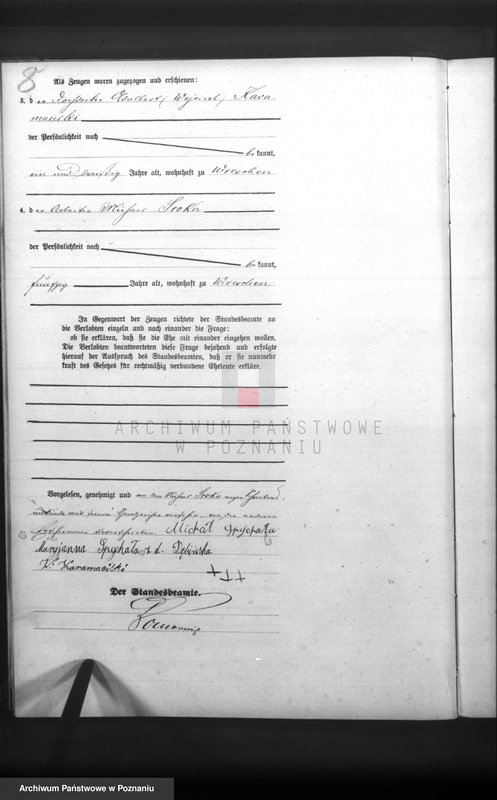 8
Als Zeugen waren zugezogen und erschienen:
3. der Adalbert (Wojciech) Kara
maniki
der Persönlichkeit nach
be kannt,
ein und dreißig Jahre alt, wohnhaft zu Wreschen
4. der Arbeiter Michael Sroka
der Persönlichkeit nach
be kannt,
fünfzig Jahre alt, wohnhaft zu Wreschen
In Gegenwart der Zeugen richtete der Standesbeamte an
die Verlobten einzeln und nach einander die Frage:
ob sie erklären, daß sie die Ehe mit einander eingehen wollen.
Die Verlobten beantworteten diese Frage bejahend und erfolgte
hierauf der Ausspruch des Standesbeamten, daß er sie nunmehr
kraft des Gesetzes für rechtmäßig verbundene Eheleute erkläre.
ARCHIWUM PAŃSTWOWE
W POZNANIU
Vorgelesen, genehmigt und von dem Michael Sroka wegen
mit seinem Handzeichen versehen, von den anderen
Erschienenen unterschrieben. Michał Spychała
Maryjanna Spychała z d. Dębińska
W. Karamański +++
Der Standesbeamte.
Archiwum Państwowe w Poznaniu